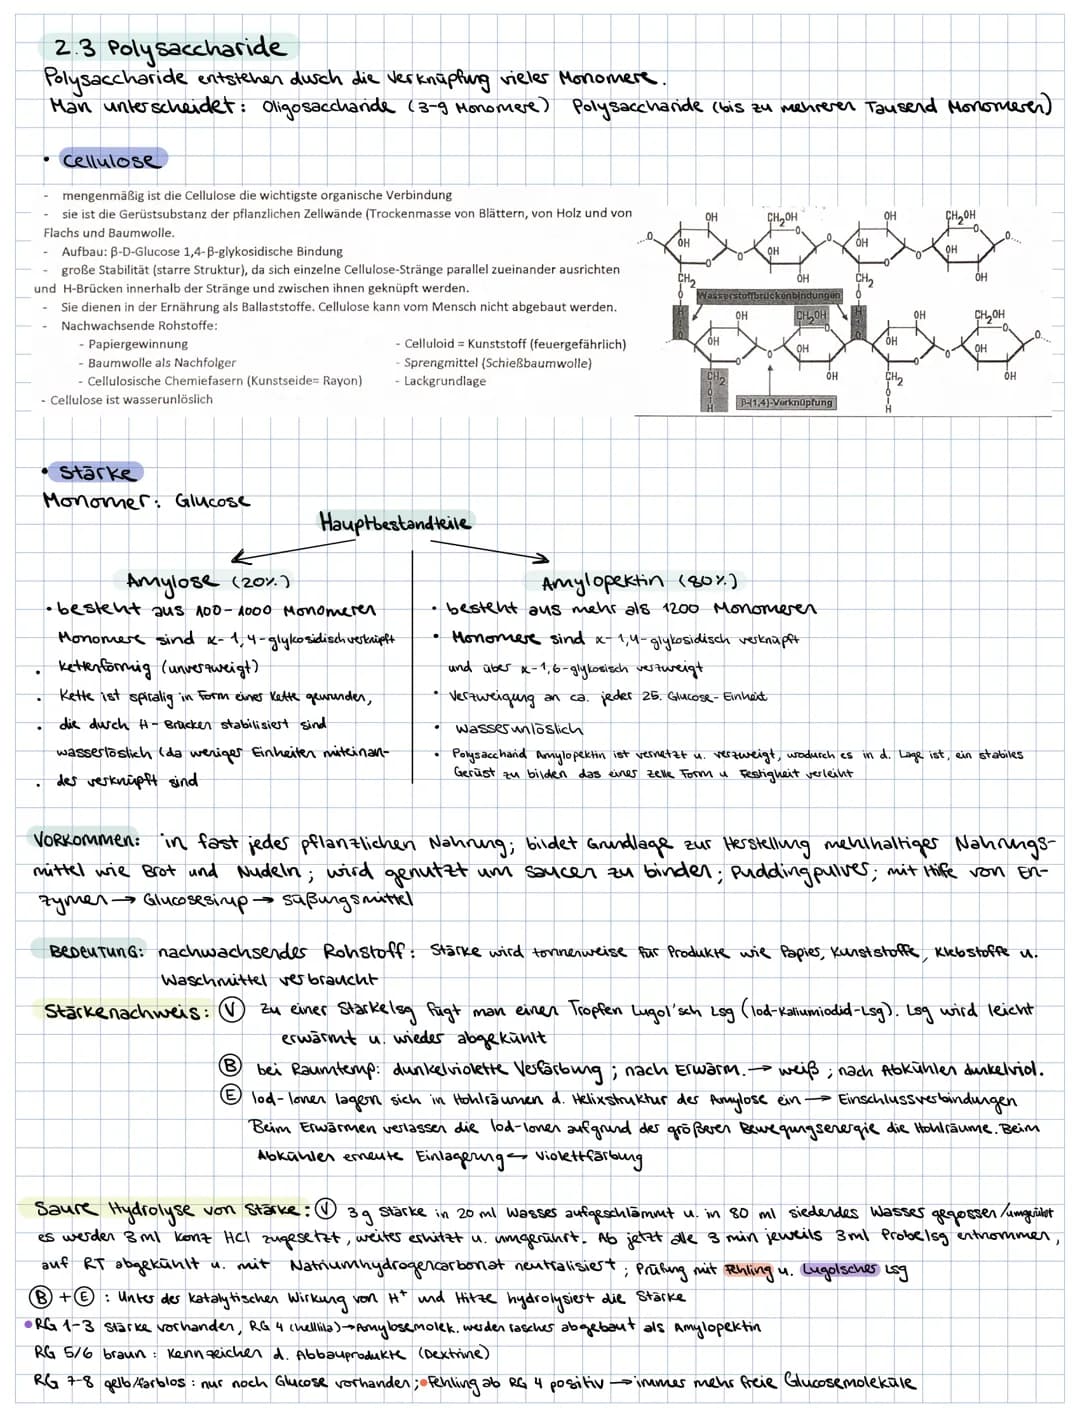 2.3 Polysaccharide
Polysaccharide entstehen durch die Verknüpfung vieler Monomere.
Man unterscheidet: Oligosaccharide (3-9 Monomere) Polysaccharide (bis zu mehreren Tausend Monomeren)
• Cellulose
- mengenmäßig ist die Cellulose die wichtigste organische Verbindung
- sie ist die Gerüstsubstanz der pflanzlichen Zellwände (Trockenmasse von Blättern, von Holz und von
Flachs und Baumwolle.
- Aufbau: β-D-Glucose 1,4-β-glykosidische Bindung
- große Stabilität (starre Struktur), da sich einzelne Cellulose-Stränge parallel zueinander ausrichten
und H-Brücken innerhalb der Stränge und zwischen ihnen geknüpft werden.
- Sie dienen in der Ernährung als Ballaststoffe. Cellulose kann vom Mensch nicht abgebaut werden.
- Nachwachsende Rohstoffe:
- Papiergewinnung
- Baumwolle als Nachfolger
- Cellulosische Chemiefasern (Kunstseide= Rayon)
- Celluloid = Kunststoff (feuergefährlich)
- Sprengmittel (Schießbaumwolle)
- Lackgrundlage
- Cellulose ist wasserunlöslich
OH CH₂OH OH CH₂OH
OH OH OH OH
CH₂ OH CH₂ OH
Wasserstoffbrückenbindungen
OH CH₂OH OH CH₂OH
OH OH OH OH
CH₂ OH CH₂ OH
β-(1,4)-Verknüpfung
• Stärke
Monomer: Glucose
Hauptbestandteile
Amylose (20%)
• besteht aus 100-1000 Monomeren
Monomere sind α-1,4-glykosidisch verknüpft
• kettenförmig (unverzweigt)
• Kette ist spiralig in Form einer Kette gewunden,
• die durch H-Brücken stabilisiert sind
wasserlöslich (da weniger Einheiten miteinan-
• der verknüpft sind
Amylopektin (80%)
• besteht aus mehr als 1200 Monomeren
• Monomere sind α-1,4-glykosidisch verknüpft
und über α-1,6-glykosisch verzweigt
• Verzweigung an ca. jeder 25. Glucose-Einheit
• wasserunlöslich
• Polysaccharid Amylopektin ist vernetzt u. verzweigt, wodurch es in d. Lage ist, ein stabiles
Gerüst zu bilden das einer Zelle Form u Festigkeit verleiht
VORKOMMEN: in fast jeder pflanzlichen Nahrung; bildet Grundlage zur Herstellung mehlhaltiger Nahrungs-
mittel wie Brot und Nudeln; wird genutzt um Saucen zu binden; Puddingpulver; mit Hilfe von En-
zymen → Glucosesirup → Süßungsmittel
BEDEUTUNG: nachwachsender Rohstoff: Stärke wird tonnenweise für Produkte wie Papier, Kunststoffe, Klebstoffe u.
Waschmittel verbraucht
Stärkenachweis: Ⓥ zu einer Stärkelsg fügt man einen Tropfen Lugol'sch Lsg (Iod-Kaliumiodid-Lsg). Lsg wird leicht
erwärmt u. wieder abgekühlt
Ⓑ bei Raumtemp: dunkelviolette Verfärbung; nach Erwärm. → weiß; nach Abkühlen dunkelviol.
Ⓔ Iod-Ionen lagern sich in Hohlräumen d. Helixstruktur der Amylose ein → Einschlussverbindungen
Beim Erwärmen verlassen die Iod-Ionen aufgrund der größeren Bewegungsenergie die Hohlräume. Beim
Abkühlen erneute Einlagerung → Violettfärbung
Saure Hydrolyse von Stärke: Ⓥ 3g Stärke in 20 ml Wasser aufgeschlämmt u. in 80 ml siedendes Wasser gegossen/umgerührt
es werden 3ml konz HCl zugesetzt, weiter erhitzt u. umgerührt. Ab jetzt alle 3 min jeweils 3ml Probelsg entnommen,
auf RT abgekühlt u. mit Natriumhydrogencarbonat neutralisiert; Prüfung mit Fehling u. Lugolscher Lsg
Ⓑ + Ⓔ: Unter der katalytischen Wirkung von H⁺ und Hitze hydrolysiert die Stärke
• RG 1-3 Stärke vorhanden, RG 4 (helllila) → Amylosemolek. werden rascher abgebaut als Amylopektin
RG 5/6 braun: Kennzeichen d. Abbauprodukte (Dextrine)
RG 7-8 gelb/farblos: nur noch Glucose vorhanden; • Fehling ab RG 4 positiv → immer mehr freie Glucosemoleküle